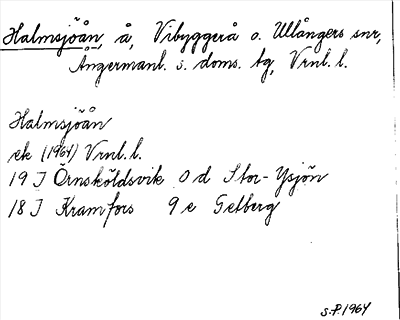 Halmsjöån, å, Vibyggerå o. Ullångers snr,
Ångermanl. s. doms. tg, Vrnl. l.
Halmsjöån
ek (1964) Vrnl. l.
19 J Örnsköldsvik 0 d Stor-Ysjön
18 J Kramfors 9 e Getberg
S.P. 1964